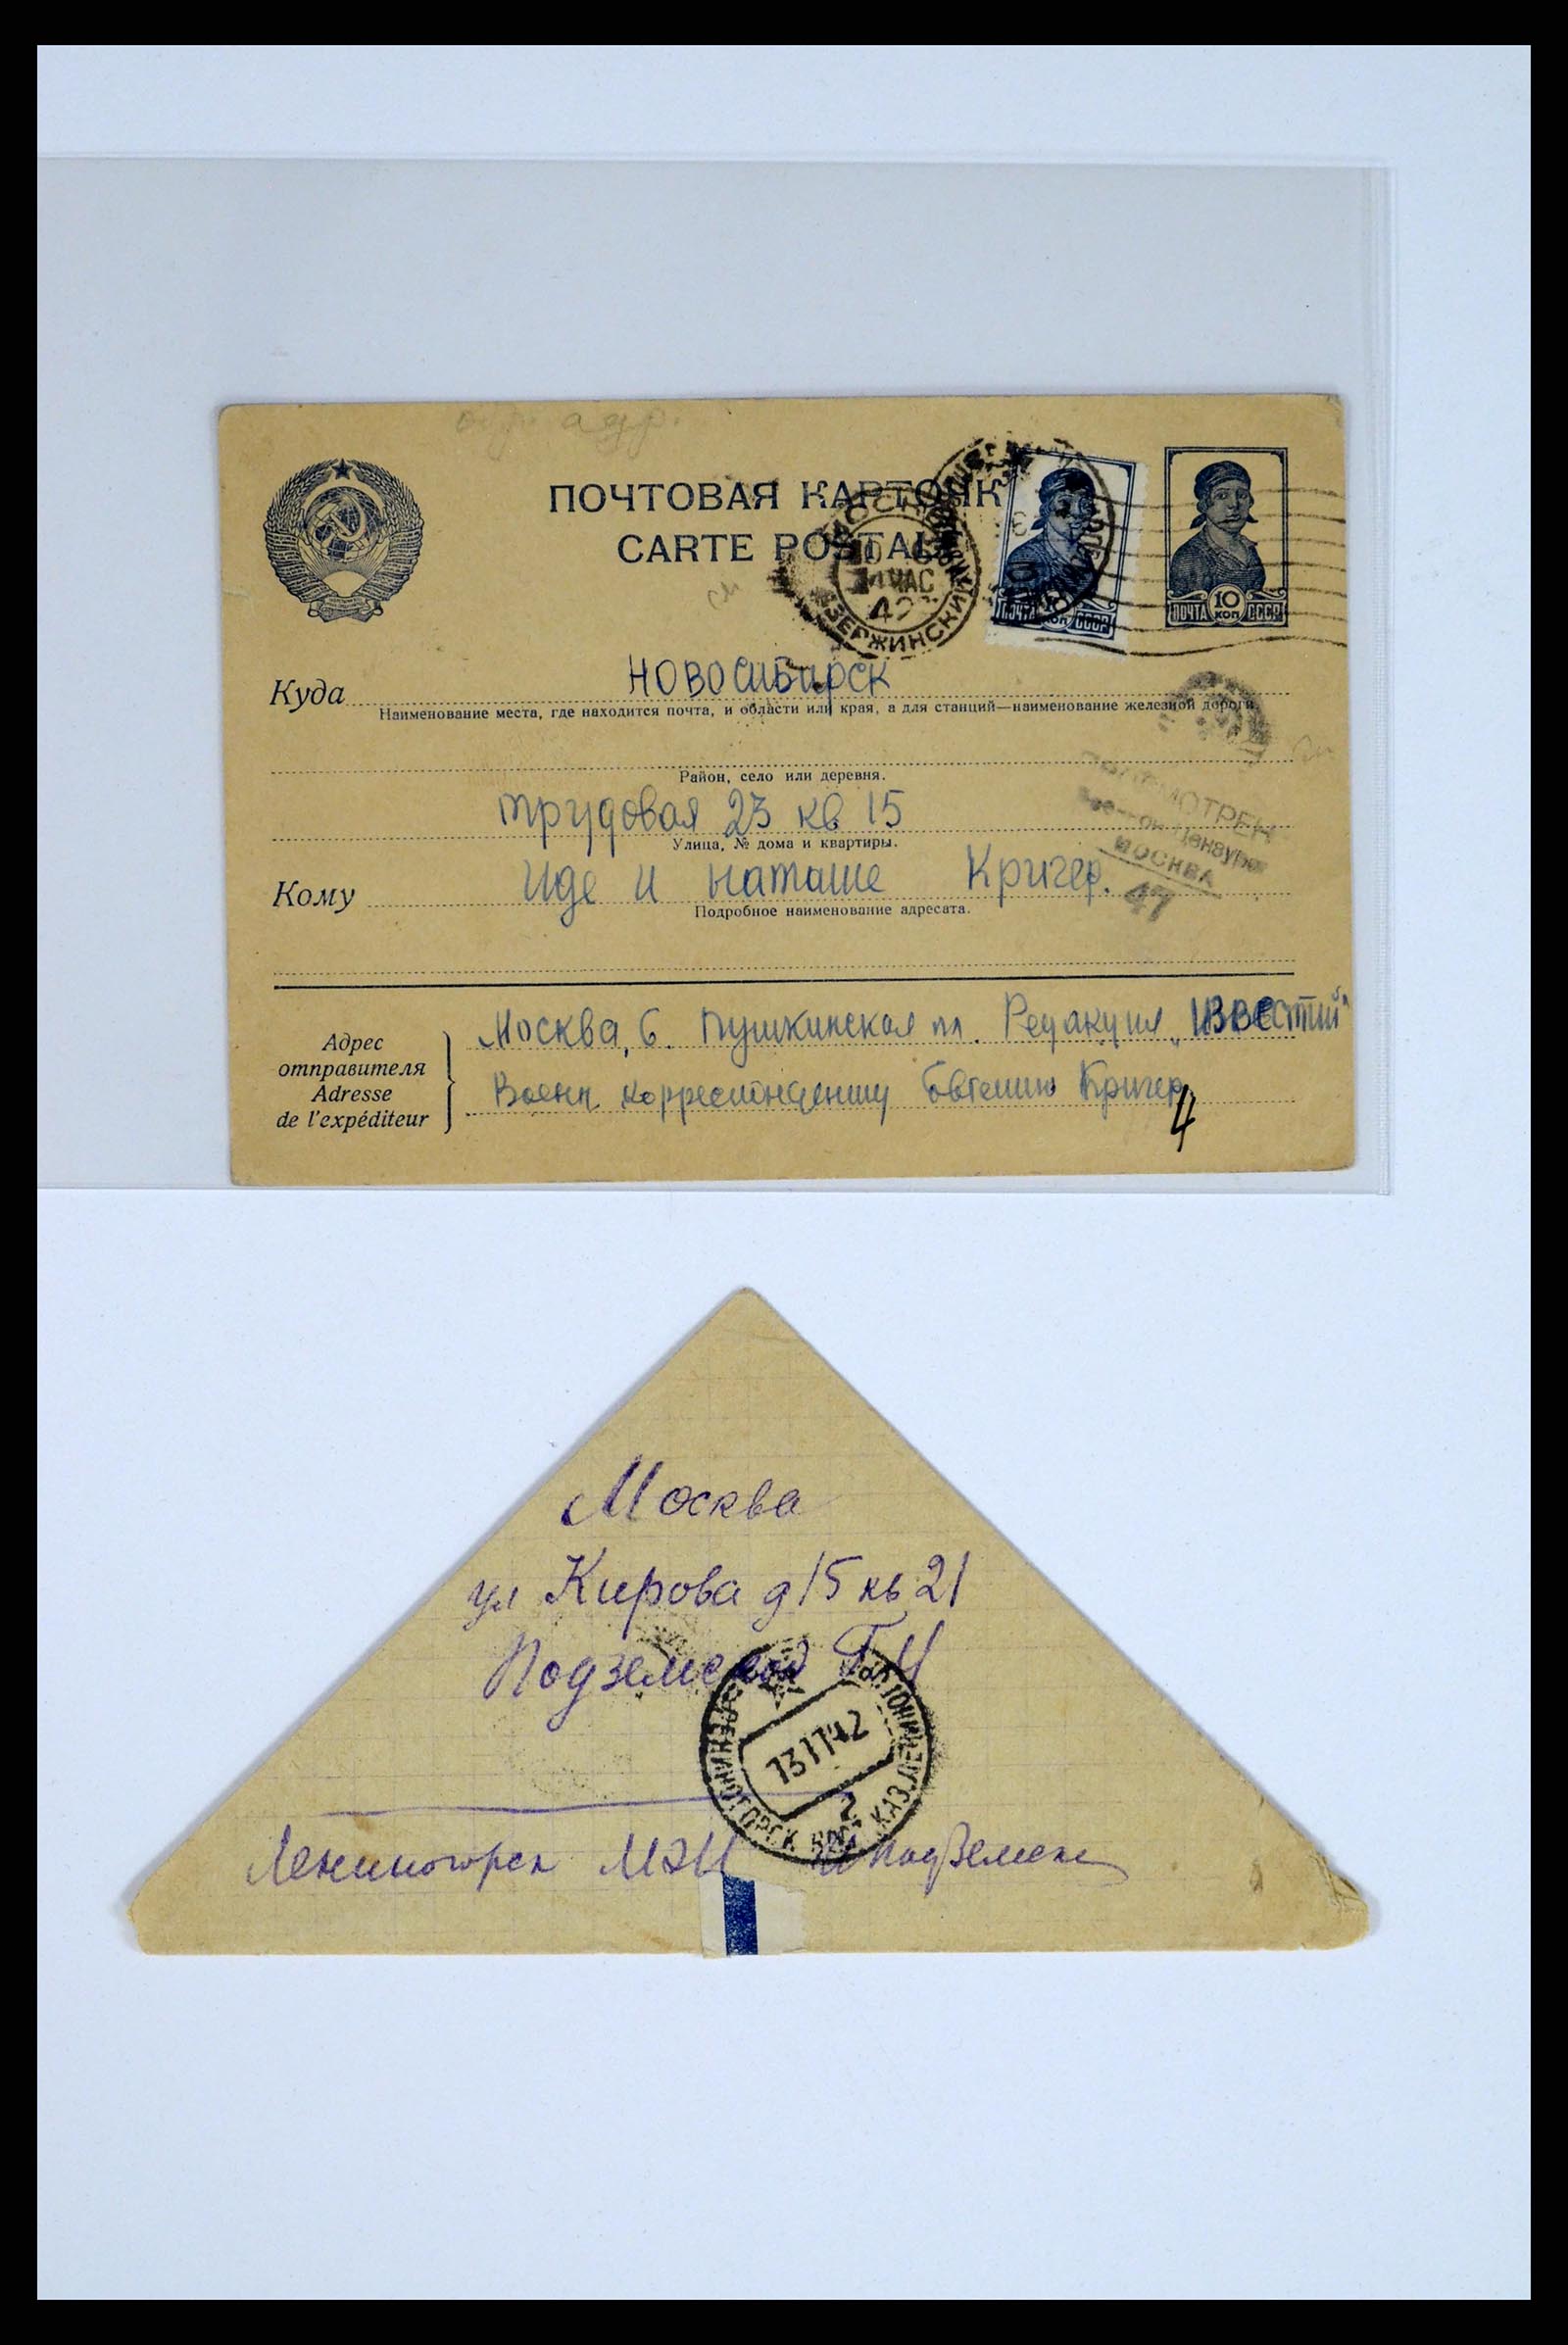 обр. адр.
ПОЧТОВАЯ КАРТОЧК
CARTE POSTALE
ПОЧТА 10 КОП СССР
ПОЧТА 10 КОП СССР
ЧАС
42
ДЗЕРЖИНСКИЙ
Куда Новосибирск
Наименование места, где находится почта, и области или края, а для станций—наименование железной дороги.
Район, село или деревня.
Трудовая 23 кв 15
Улица, № дома и квартиры.
Кому Иде и Наташе Кригер.
Подробное наименование адресата.
ПРОСМОТРЕНО
Военной Цензурой
МОСКВА
47
Адрес отправителя
Adresse de l'expéditeur
Москва, 6. Пушкинская пл. Редакция „Известий"
Военн. корреспонденту Евгению Кригер
4
Москва
ул Кирова д 15 кв 21
Подземской Г И
13 11 42
ЛЕНИНОГОРСК ВОСТ. КАЗ. ЛЕНИНОГОР
2
Лениногорск МЭИ Подземск